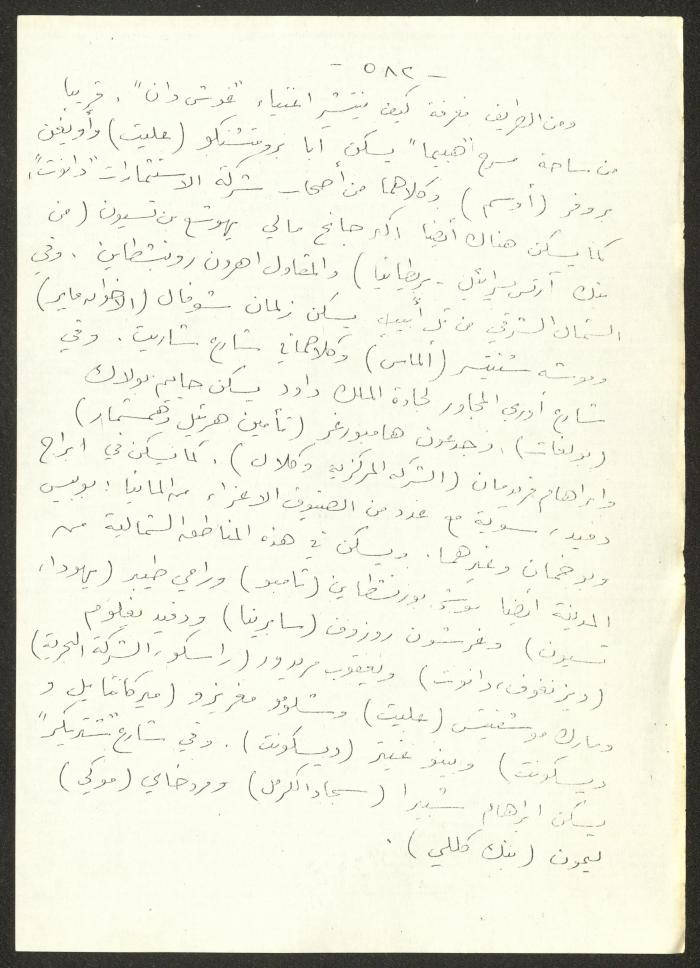 - ٥٨٢ -
ومن الطريف معرفة كيف ينتشر اغنياء "غوش دان". قريبا
من ساحة مسرح "هبيما" يسكن أبا برومتشنكو (عليت) وأويغن
بروفر (أوسم) وكلاهما من أصحاب شركة الاستثمارات "دانوت"،
كما يسكن هناك أيضا اكبر جانح مالي يهوشع بن تسيون (من
بنك آرتس يسرائيل - بريطانيا) والمقاول اهرون روبنشطاين. وفي
الشمال الشرقي من تل أبيب يسكن زلمان شوفال (الاخوان ماير)
وموشه شنيتسر (ألماس) وكلاهما في شارع شاريت. وفي
شارع أوري المجاور لجادة الملك داود يسكن حاييم بولاك
(بولغات)، وجدعون هامبورغر (تأمين هرئيل وهمشمار)
وابراهام فريدمان (الشركة المركزية وكلال). كما يسكن في ابراج
دفيد، سوية مع عدد من الضيوف الاعزاء من المانيا: بوبيس
وبوخمان وغيرهما. ويسكن في هذه المناطق الشمالية من
المدينة أيضا موشيه بورنشطاين (تامبو) ورامي طيبر (يهودا،
تسيون) وغرشون روزوف (سابرينا) ودفيد بفلوم
(ديزنغوف، دانوت) ويعقوب مريدور (راسكو، الشركة البحرية)
ومارك موشفيتس (عليت) وشلومو مغريزو (ميركانتايل و
ديسكونت) وبينو غيتر (ديسكونت). وفي شارع "شتريكر"
يسكن ابراهام شبيرا (سجاد الكرمل) ومردخاي (موكي)
ليمون (بنك كللي).